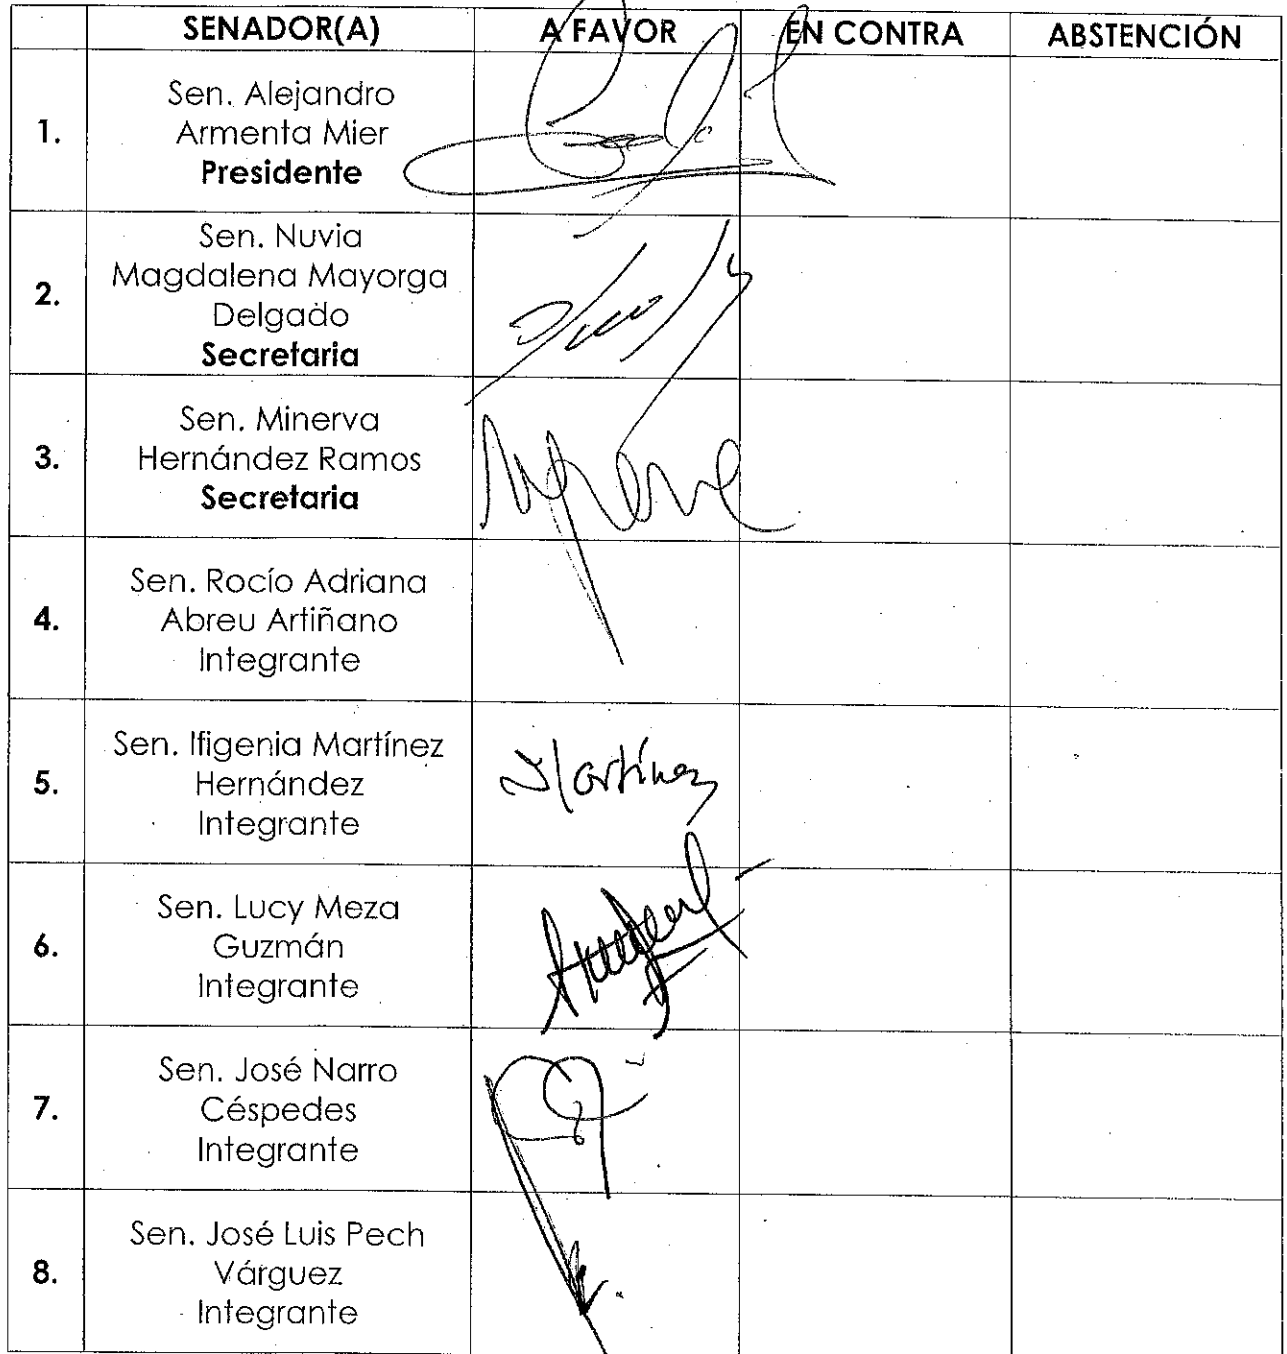 SENADOR(A) A FAVOR EN CONTRA ABSTENCIÓN
1. Sen. Alejandro
Armenta Mier
Presidente
2. Sen. Nuvia
Magdalena Mayorga
Delgado
Secretaria
3. Sen. Minerva
Hernández Ramos
Secretaria
4. Sen. Rocío Adriana
Abreu Artiñano
Integrante
5. Sen. Ifigenia Martínez
Hernández
Integrante
Martínez
6. Sen. Lucy Meza
Guzmán
Integrante
7. Sen. José Narro
Céspedes
Integrante
8. Sen. José Luis Pech
Várguez
Integrante